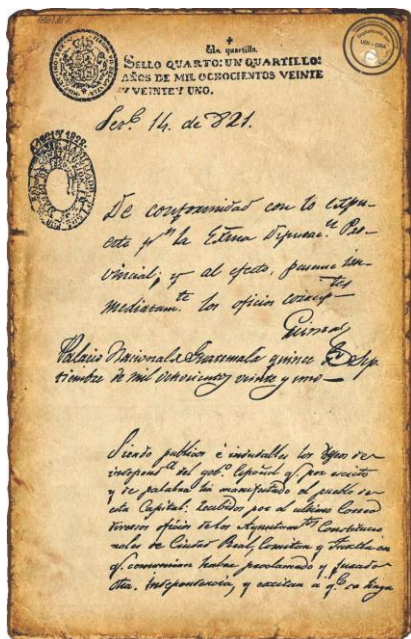 Un quartillo.
SELLO QUARTO: UN QUARTILLO:
AÑOS DE MIL OCHOCIENTOS VEINTE
Y VEINTE Y UNO.
14. de 821.
De conformidad con lo expu-
esto pr. la Exma Diputacn. Pro-
vincial; y al efecto, pasense in-
mediatamte. los oficios
Palacio Nacional de Guatemala quince de Sep-
tiembre de mil ochocientos veinte y uno
Siendo publicos é indudables los deseos de
independa. del gobo. Español q. por escrito
y de palabra ha manifestado el pueblo de
esta Capital: recibidos por el ultimo Correo
diversos oficios de los Ayuntamtos. Constitucio
nales de Ciudad Real, Comitan y Tuxtla en
q. comunican haber proclamado y jurado
dha. Independencia, y excitan a q. se haga